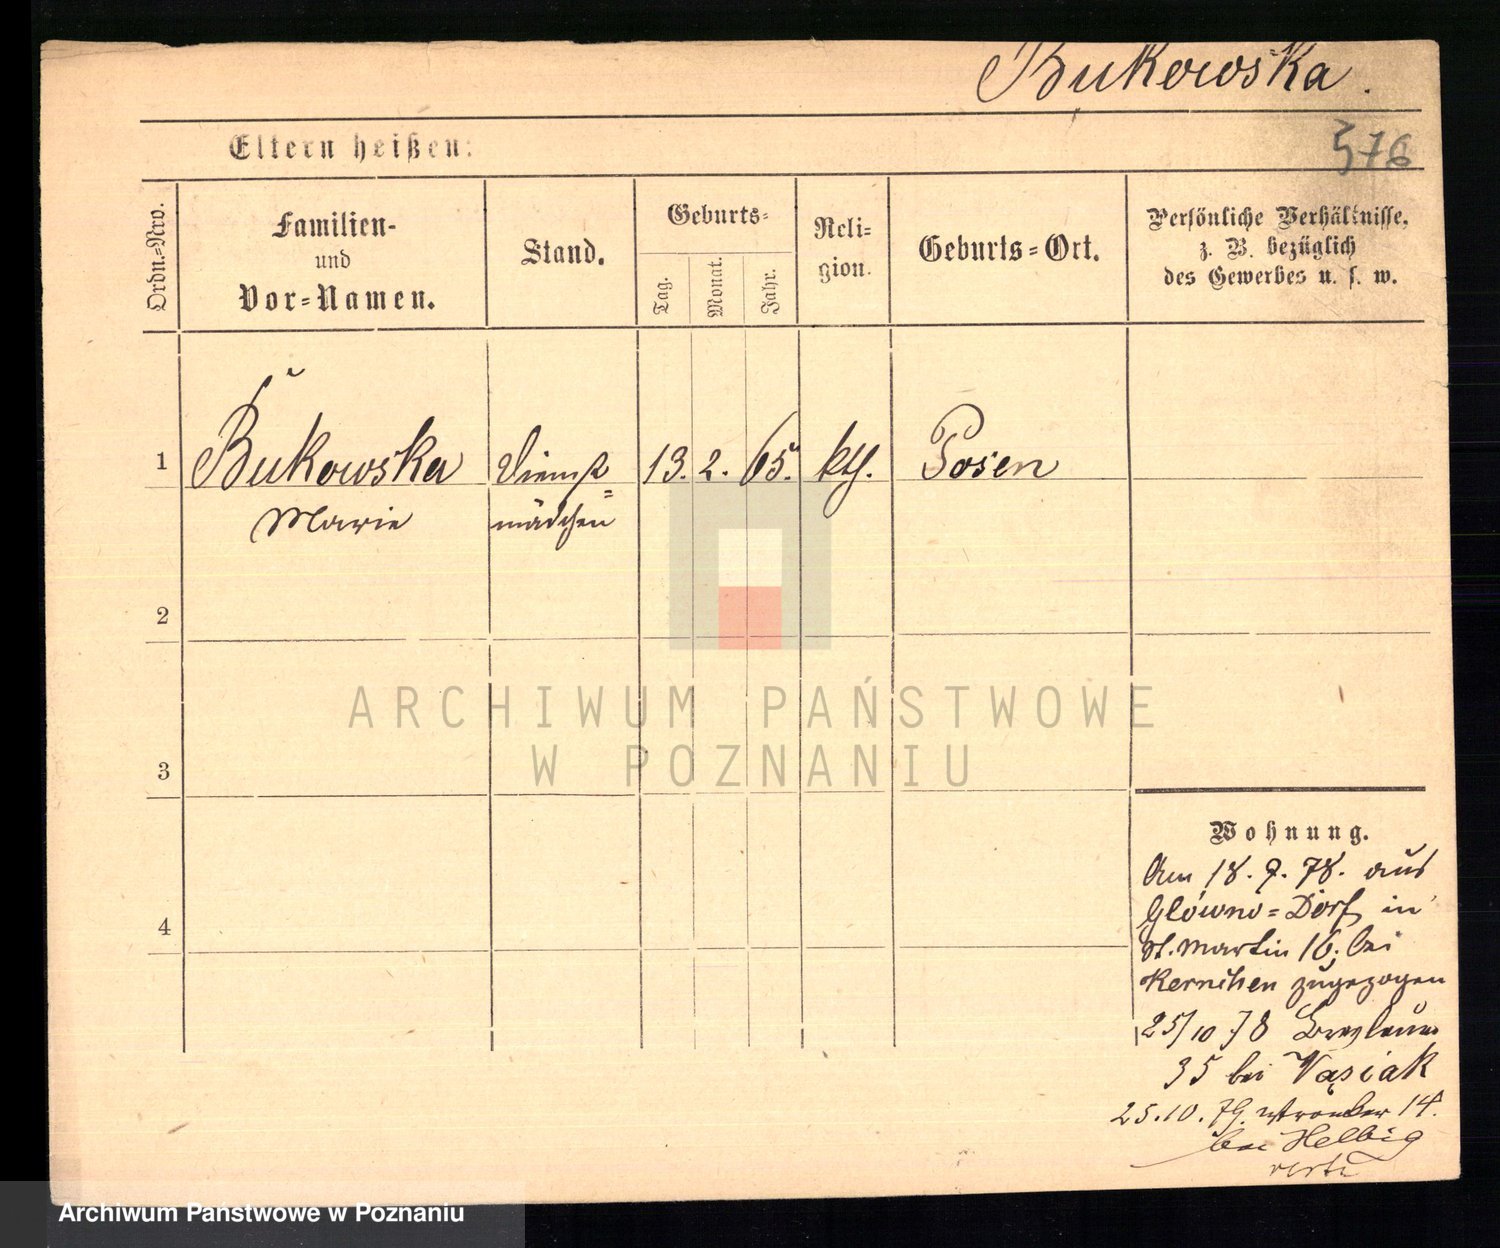 Bukowska.
Eltern heißen:
576
Ordn.=Nro.
Familien-
und
Vor=Namen.
Stand.
Geburts=
Tag.
Monat.
Jahr.
Reli=
gion.
Geburts=Ort.
Persönliche Verhältnisse,
z. B. bezüglich
des Gewerbes u. s. w.
1
Bukowska
Marie
Dienst=
mädchen
13. 2. 65.
kth.
Posen
2
3
4
ARCHIWUM PAŃSTWOWE
W POZNANIU
Wohnung.
Am 18. 9. 78. aus
Glówno=Dorf in
St. Martin 16. bei
zugezogen
25/10 78 Breslauer
35 bei Vąsiak
25.10.79. Wronker 14.
bei Helbig
verte
Archiwum Państwowe w Poznaniu